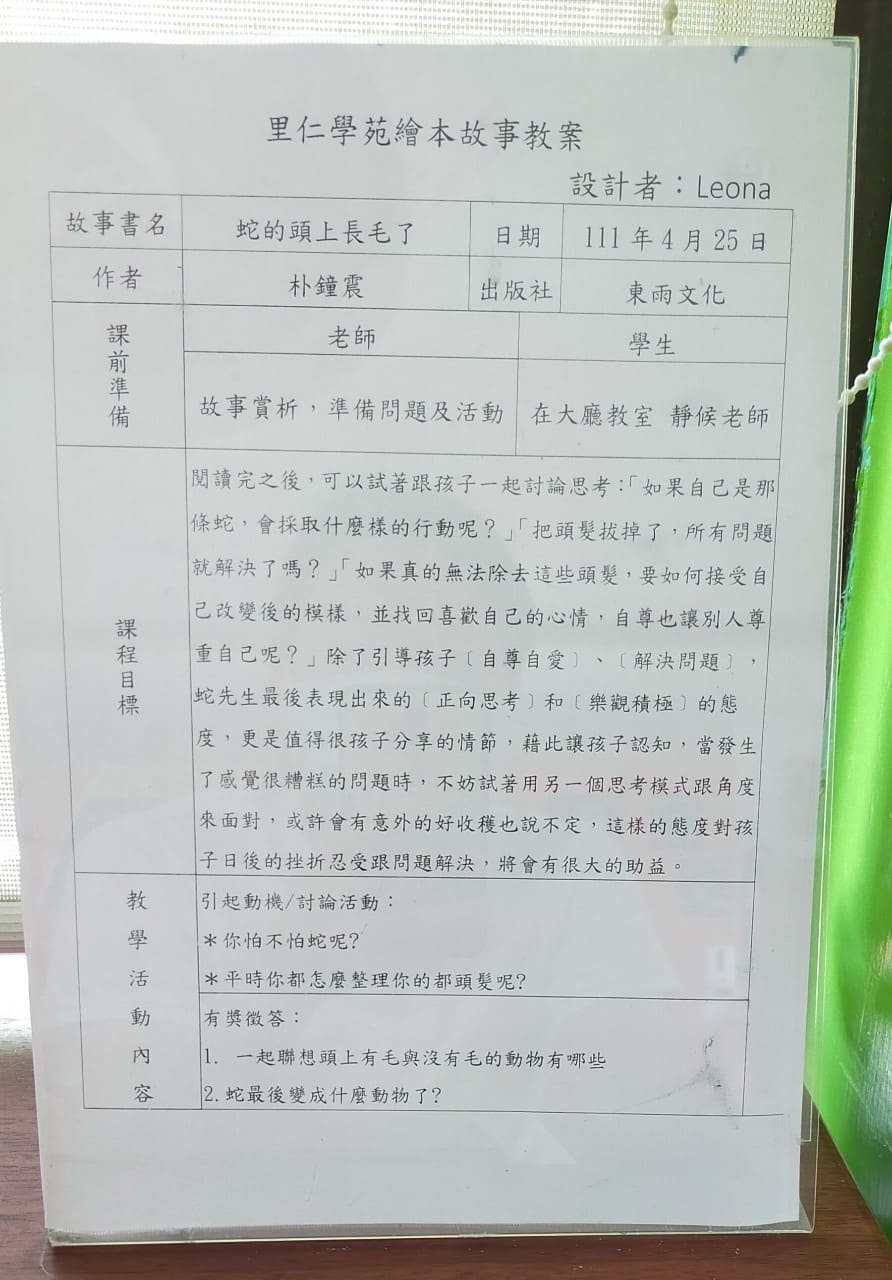 里仁學苑繪本故事教案
設計者：Leona
故事書名 蛇的頭上長毛了 日期 111 年 4 月 25 日
作者 朴鐘震 出版社 東雨文化
課前準備
老師 學生
故事賞析，準備問題及活動 在大廳教室 靜候老師
課程目標
閱讀完之後，可以試著跟孩子一起討論思考：「如果自己是那
條蛇，會採取什麼樣的行動呢？」「把頭髮拔掉了，所有問題
就解決了嗎？」「如果真的無法除去這些頭髮，要如何接受自
己改變後的模樣，並找回喜歡自己的心情，自尊也讓別人尊
重自己呢？」除了引導孩子〔自尊自愛〕、〔解決問題〕，
蛇先生最後表現出來的〔正向思考〕和〔樂觀積極〕的態
度，更是值得很孩子分享的情節，藉此讓孩子認知，當發生
了感覺很糟糕的問題時，不妨試著用另一個思考模式跟角度
來面對，或許會有意外的好收穫也說不定，這樣的態度對孩
子日後的挫折忍受跟問題解決，將會有很大的助益。
教學活動內容
引起動機/討論活動：
＊你怕不怕蛇呢?
＊平時你都怎麼整理你的都頭髮呢?
有獎徵答：
1. 一起聯想頭上有毛與沒有毛的動物有哪些
2.蛇最後變成什麼動物了?